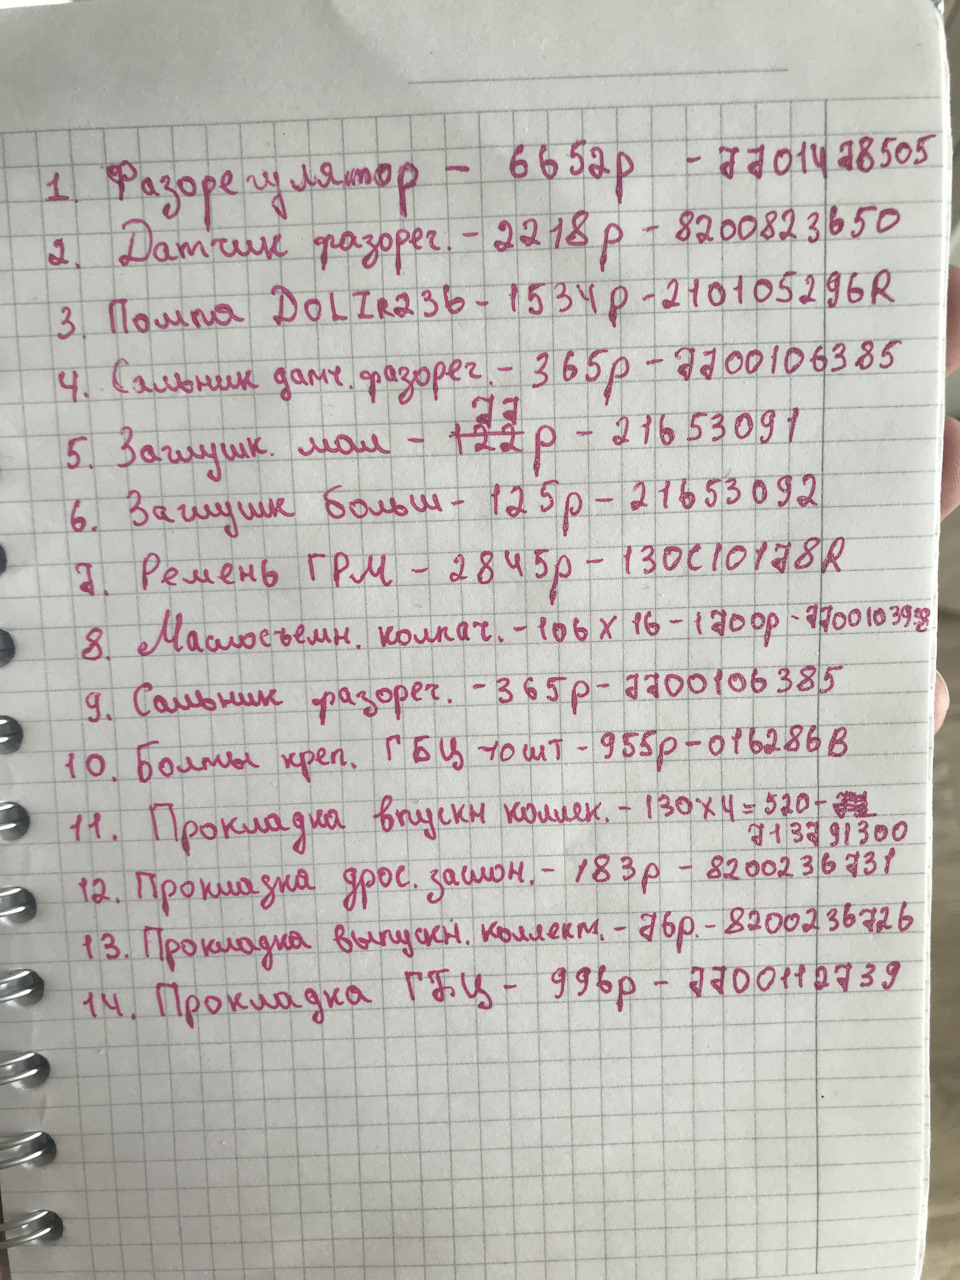 1. Фазорегулятор - 6652р - 7701478505
2. Датчик фазорег. - 2218р - 8200823650
3. Помпа DOLIR236 - 1534р - 210105296R
4. Сальник датч. фазорег. - 365р - 7700106385
77
5. Заглушк. мал - 122р - 21653091
6. Заглушк больш - 125р - 21653092
7. Ремень ГРМ - 2845р - 130C10178R
8. Маслосъемн. колпач. - 106 х 16 - 1700р - 7700103938
9. Сальник фазорег. - 365р - 7700106385
10. Болты креп. ГБЦ 10шт - 955р - 016286В
11. Прокладка впускн коллек. - 130х4=520 -
713791300
12. Прокладка дрос. заслон. - 183р - 8200236731
13. Прокладка выпускн. коллект. - 76р. - 8200236726
14. Прокладка ГБЦ - 996р - 7700112739